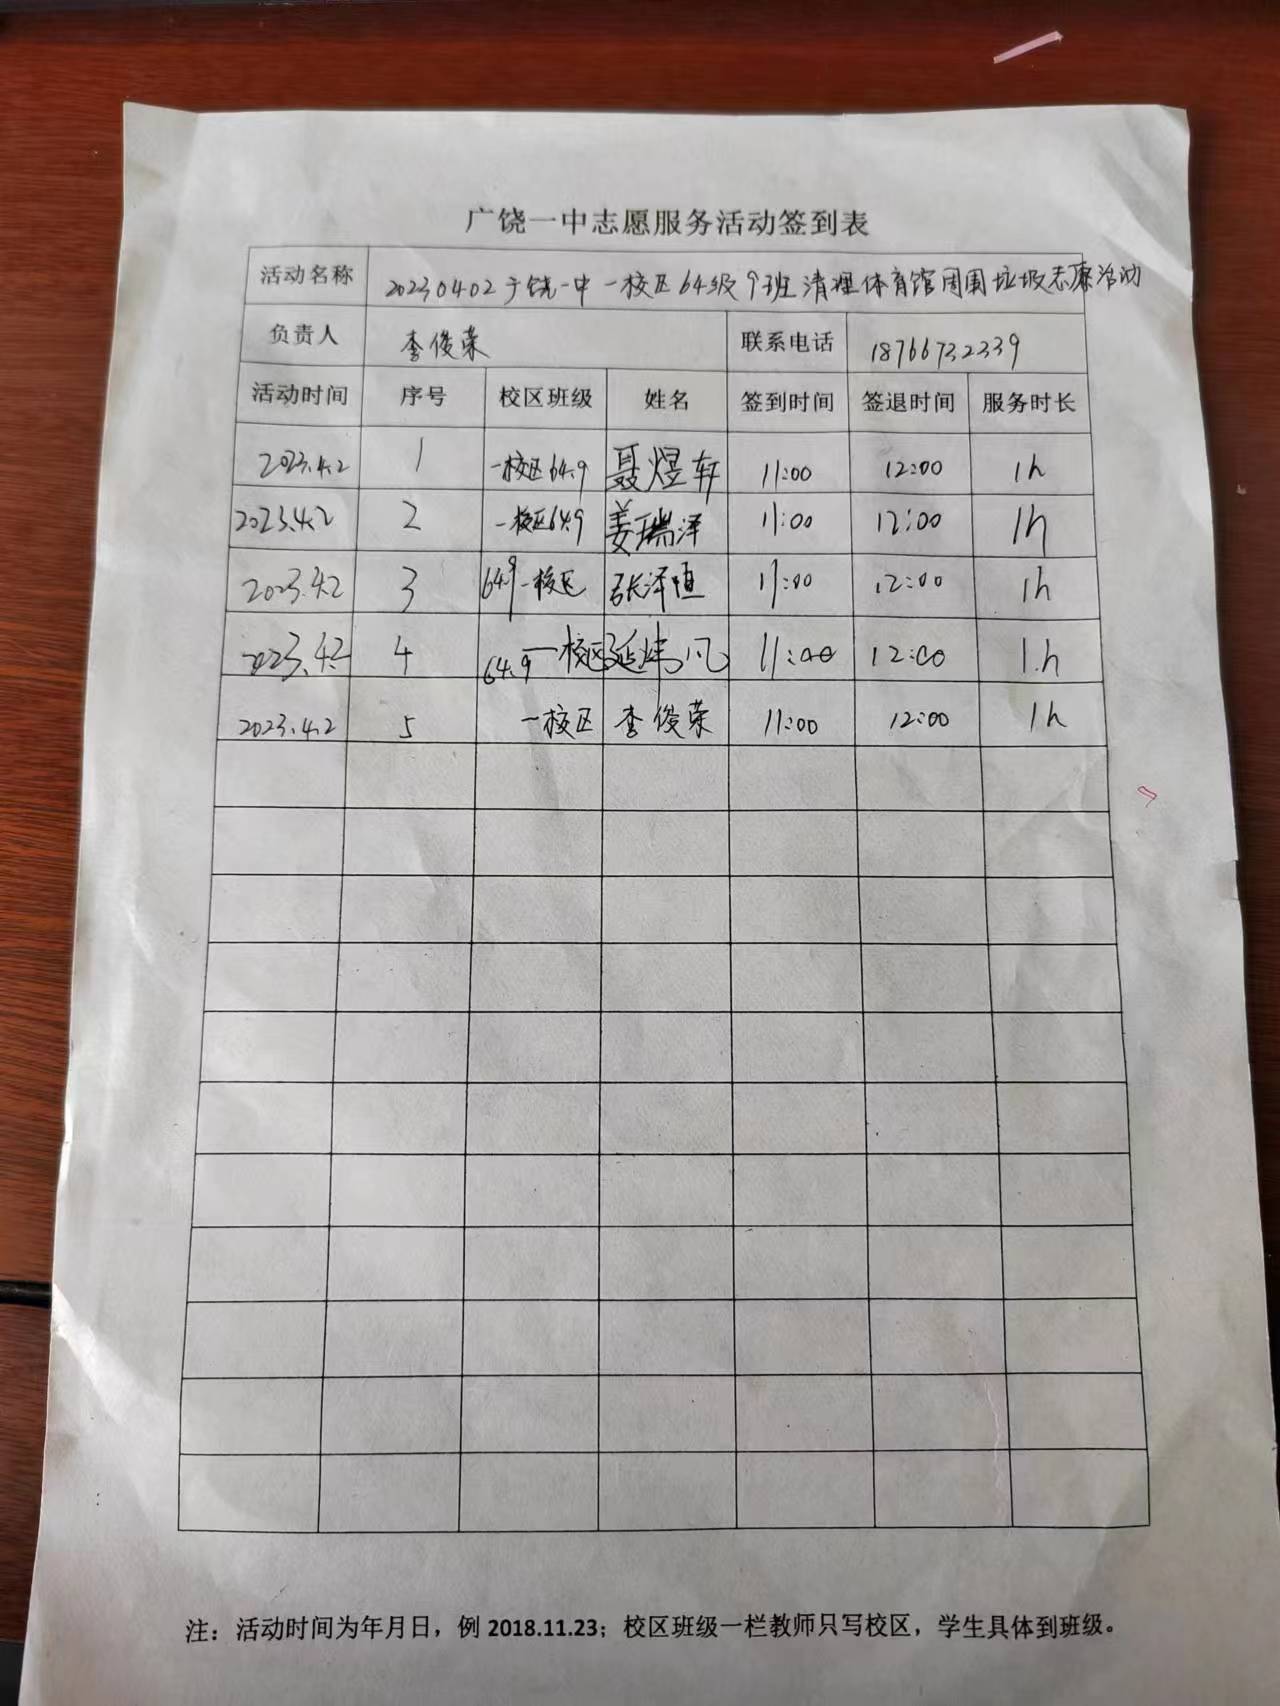 广饶一中志愿服务活动签到表
活动名称 20230402广饶一中一校区64级9班清理体育馆周围垃圾志愿活动
负责人 李俊荣 联系电话 18766732339
活动时间 序号 校区班级 姓名 签到时间 签退时间 服务时长
2023.4.2 1 一校区64.9 聂煜轩 11:00 12:00 1h
2023.4.2 2 一校区64.9 姜瑞泽 11:00 12:00 1h
2023.4.2 3 64.9一校区 张泽恒 11:00 12:00 1h
2023.4.2 4 64.9一校区 延炜凡 11:00 12:00 1.h
2023.4.2 5 一校区 李俊荣 11:00 12:00 1h
注：活动时间为年月日，例 2018.11.23；校区班级一栏教师只写校区，学生具体到班级。